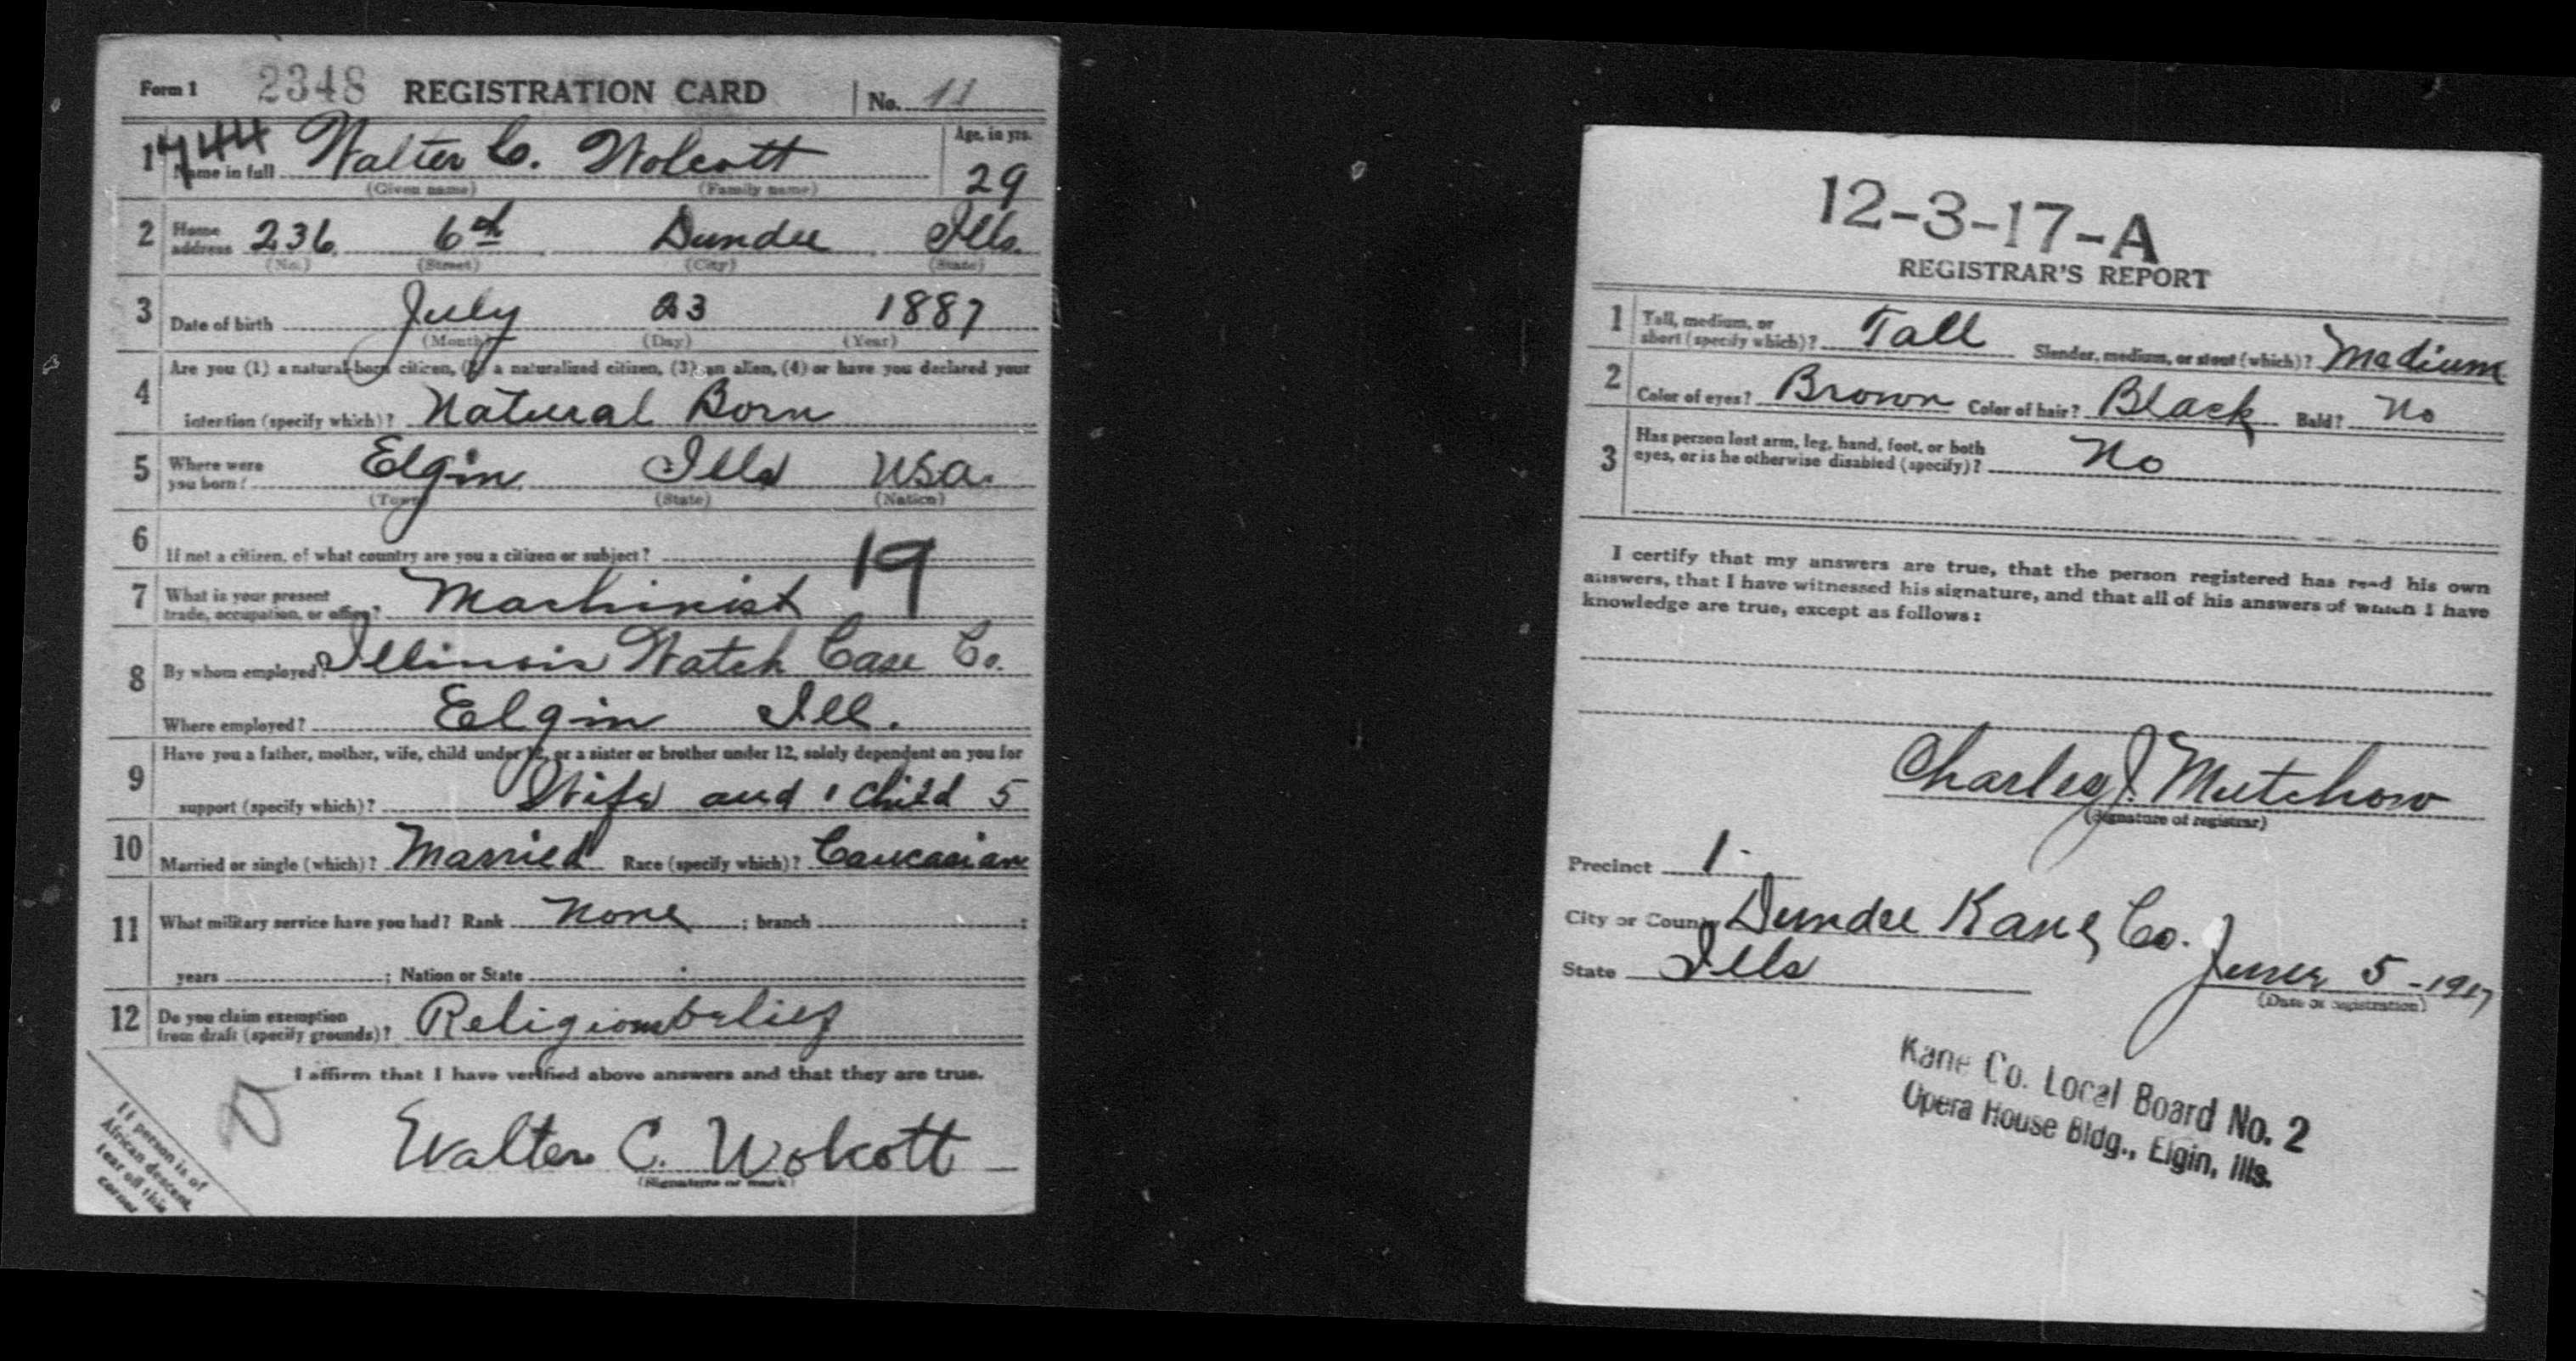 Form 1 2348 REGISTRATION CARD No. 11
1 744 Name in full Walter C. Wolcott Age, in yrs. 29
(Given name) (Family name)
2 Home address 236 6th Dundee Ills.
(No.) (Street) (City) (State)
3 Date of birth July 23 1887
(Month) (Day) (Year)
4 Are you (1) a natural-born citizen, (2) a naturalized citizen, (3) an alien, (4) or have you declared your
intention (specify which)? Natural Born
5 Where were you born? Elgin Ills USA.
(Town) (State) (Nation)
6 If not a citizen, of what country are you a citizen or subject?
19
7 What is your present trade, occupation, or office? Machinist
8 By whom employed? Illinois Watch Case Co.
Where employed? Elgin Ill.
9 Have you a father, mother, wife, child under 12, or a sister or brother under 12, solely dependent on you for
support (specify which)? Wife and 1 child 5
10 Married or single (which)? Married Race (specify which)? Caucasian
11 What military service have you had? Rank None ; branch ;
years ; Nation or State
12 Do you claim exemption from draft (specify grounds)? Religious belief
I affirm that I have verified above answers and that they are true.
Walter C. Wolcott
(Signature or mark)
If person is of
African descent,
tear off this
corner
12-3-17-A
REGISTRAR'S REPORT
1 Tall, medium, or short (specify which)? Tall Slender, medium, or stout (which)? Medium
2 Color of eyes? Brown Color of hair? Black Bald? No
3 Has person lost arm, leg, hand, foot, or both
eyes, or is he otherwise disabled (specify)? No
I certify that my answers are true, that the person registered has read his own
answers, that I have witnessed his signature, and that all of his answers of which I have
knowledge are true, except as follows:
Charles J. Mutchow
(Signature of registrar)
Precinct 1
City or County Dundee Kane Co.
State Ills June 5-1917
(Date of registration)
Kane Co. Local Board No. 2
Opera House Bldg., Elgin, Ills.